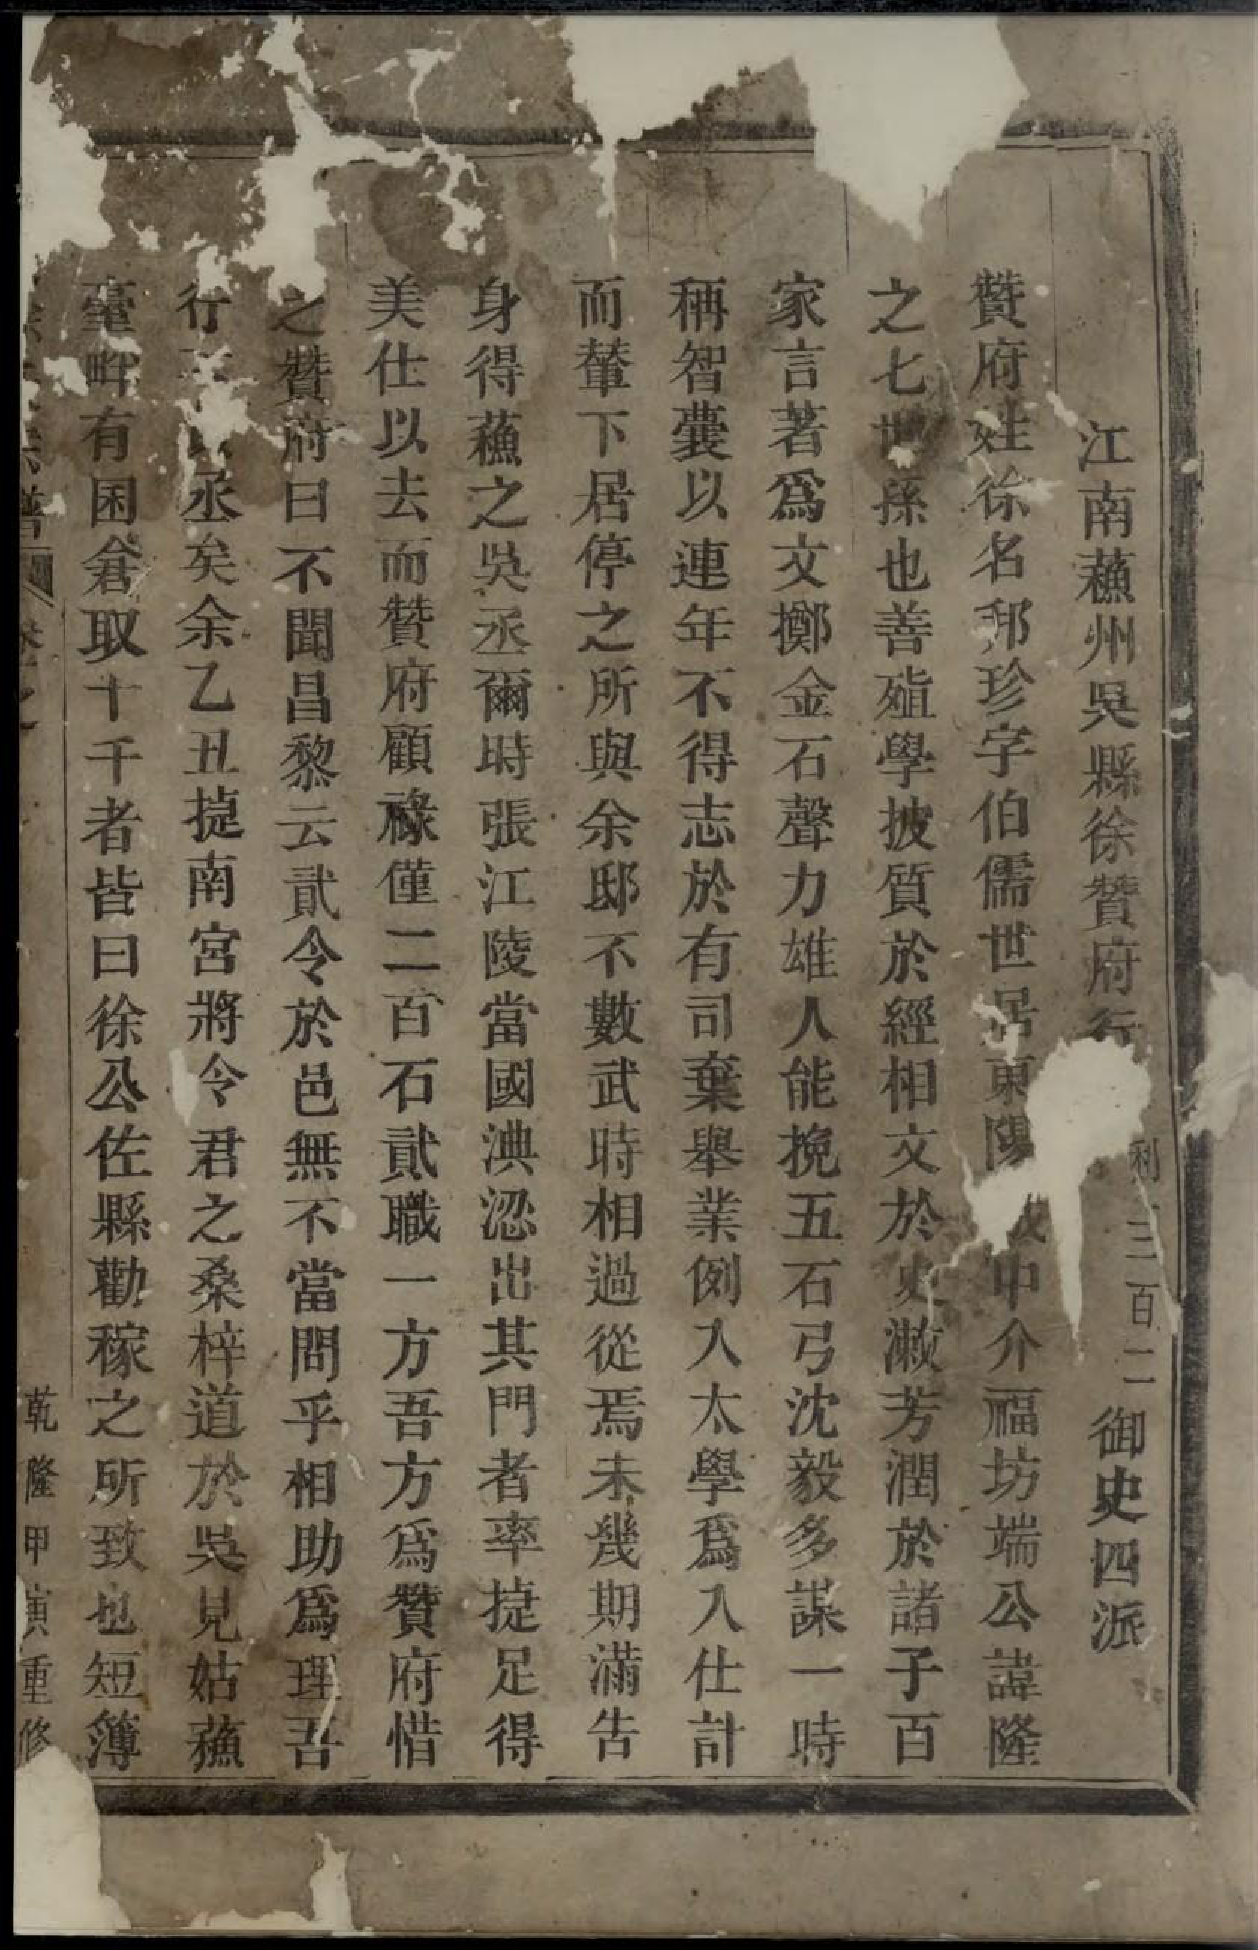 江南蘓州吳縣徐贊府行 利三百二 御史四派
贊府姓徐名邦珍字伯儒世居東陽 城中介福坊端公諱隆
之七世孫也善殖學披質於經相文於史漱芳潤於諸子百
家言著爲文擲金石聲力雄人能挽五石弓沈毅多謀一時
稱智囊以連年不得志於有司棄舉業例入太學爲入仕計
而輦下居停之所與余邸不數武時相過從焉未幾期滿告
身得蘓之吳丞爾時張江陵當國淟涊出其門者率㨗足得
美仕以去而贊府顧祿僅二百石貳職一方吾方爲贊府惜
之贊府曰不聞昌黎云貳令於邑無不當問乎相助爲理吾
行 丞矣余乙丑㨗南宮將令君之桑梓道於吳見姑蘓
臺畔有囷倉取十千者皆曰徐公佐縣勸稼之所致也短簿
譜 卷之 乾隆甲寅重修